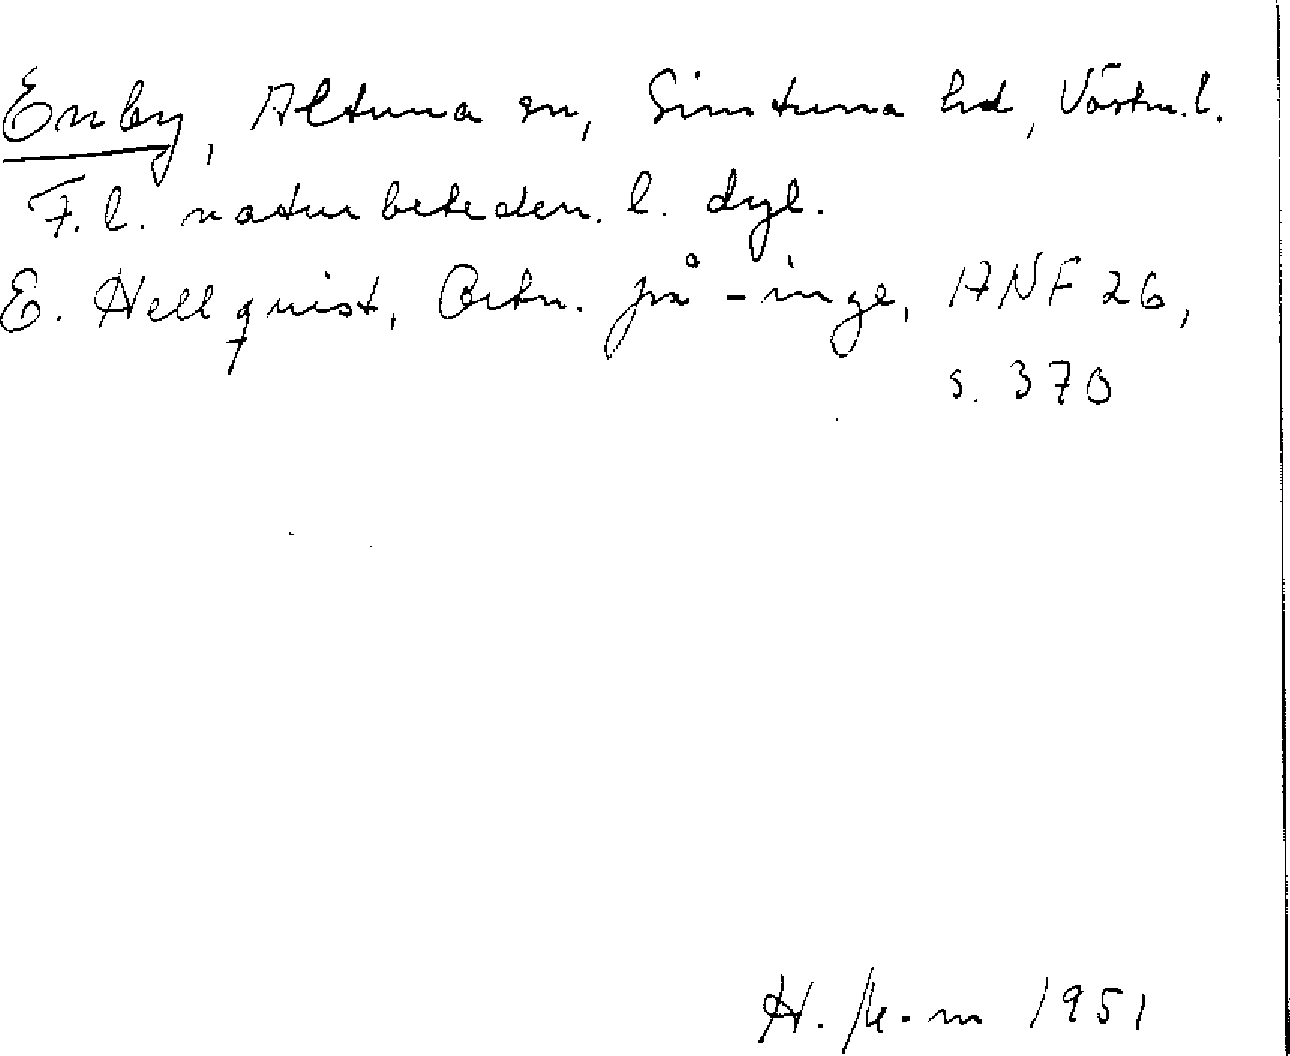 Enby, Altuna sn, Simtuna hd, Västm.l.
F.l. naturbeteckn. l. dyl.
E. Hellquist, Ortn. på -inge, ANF 26,
s. 370
H. 1951